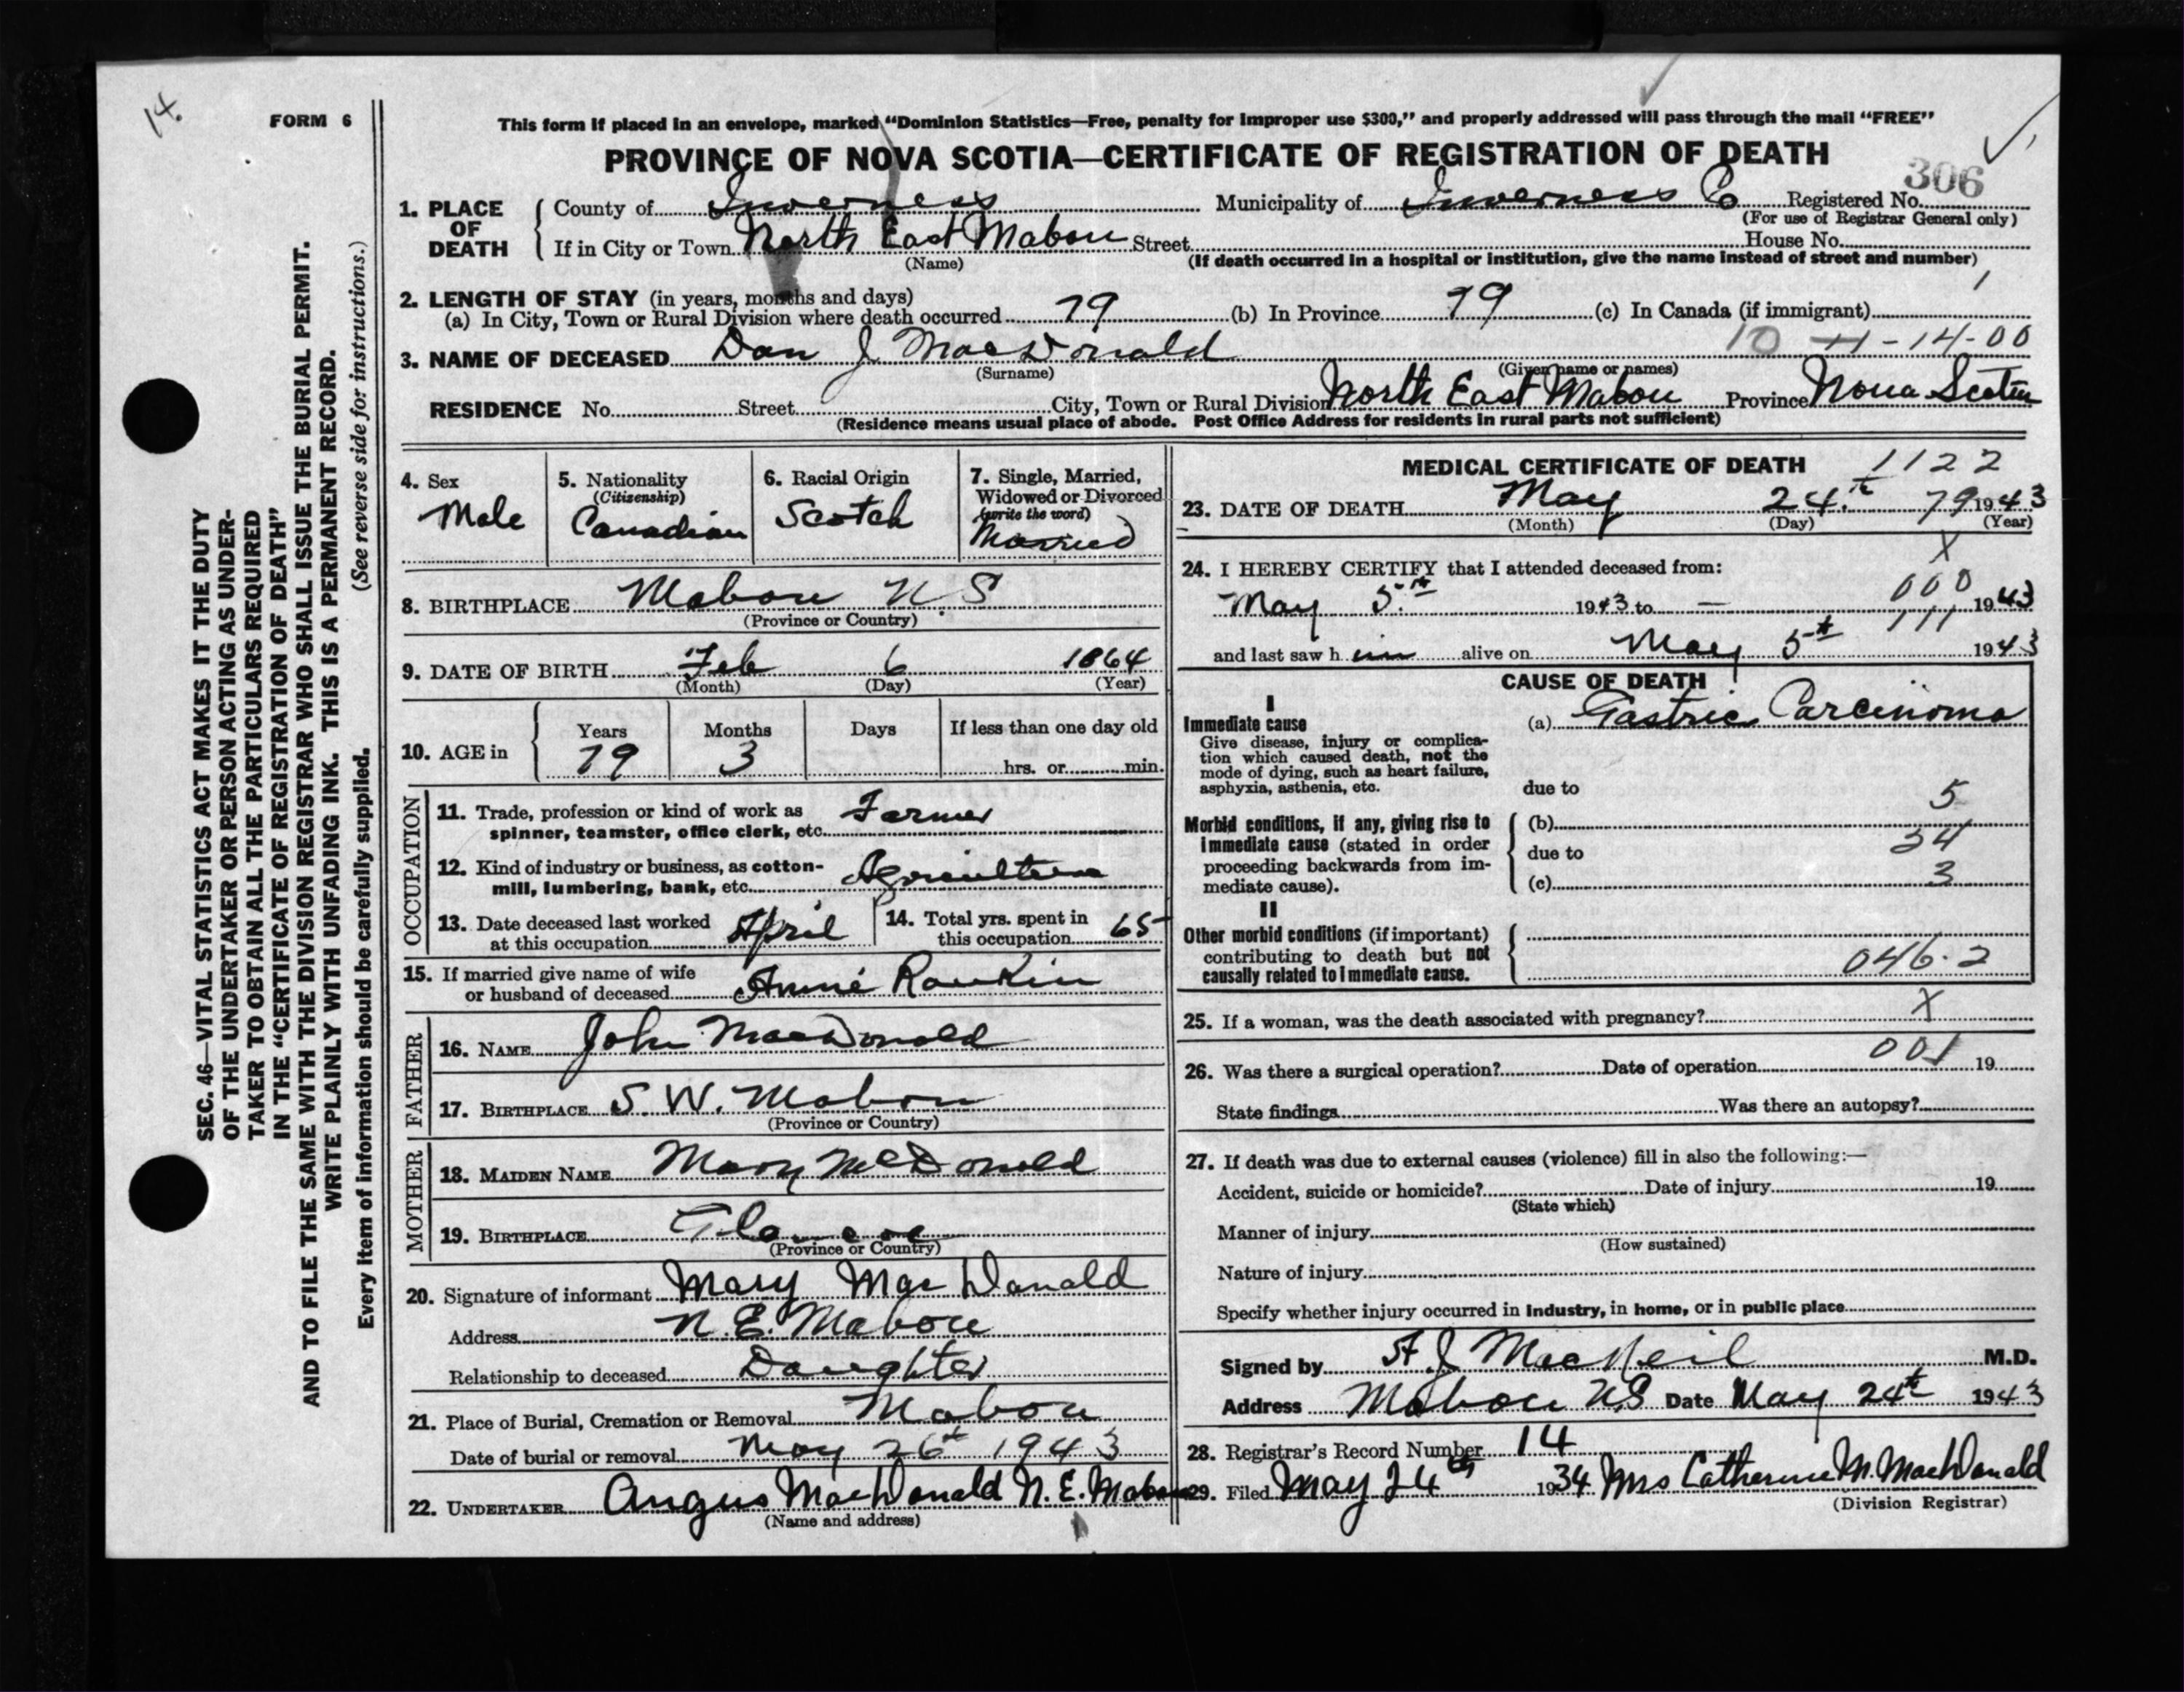 14.
FORM 6
This form if placed in an envelope, marked "Dominion Statistics—Free, penalty for improper use $300," and properly addressed will pass through the mail "FREE"
PROVINCE OF NOVA SCOTIA—CERTIFICATE OF REGISTRATION OF DEATH
306
1. PLACE OF DEATH County of Inverness Municipality of Inverness Co Registered No.
(For use of Registrar General only)
If in City or Town North East Mabou Street House No.
(Name) (If death occurred in a hospital or institution, give the name instead of street and number)
2. LENGTH OF STAY (in years, months and days)
(a) In City, Town or Rural Division where death occurred 79 (b) In Province 79 (c) In Canada (if immigrant)
10 11-14-00
3. NAME OF DECEASED Dan J MacDonald
(Surname) (Given name or names)
RESIDENCE No. Street City, Town or Rural Division North East Mabou Province Nova Scotia
(Residence means usual place of abode. Post Office Address for residents in rural parts not sufficient)
4. Sex
Male
5. Nationality
(Citizenship)
Canadian
6. Racial Origin
Scotch
7. Single, Married,
Widowed or Divorced
(write the word)
Married
8. BIRTHPLACE Mabou N.S
(Province or Country)
9. DATE OF BIRTH Feb 6 1864
(Month) (Day) (Year)
10. AGE in Years Months Days If less than one day old
79 3 hrs. or min.
OCCUPATION
11. Trade, profession or kind of work as
spinner, teamster, office clerk, etc. Farmer
12. Kind of industry or business, as cotton-
mill, lumbering, bank, etc. Agriculture
13. Date deceased last worked
at this occupation April
14. Total yrs. spent in
this occupation 65
15. If married give name of wife
or husband of deceased Annie Rankin
FATHER
16. NAME John MacDonald
17. BIRTHPLACE S. W. Mabou
(Province or Country)
MOTHER
18. MAIDEN NAME Mary McDonald
19. BIRTHPLACE
(Province or Country)
20. Signature of informant Mary MacDonald
Address N.E. Mabou
Relationship to deceased Daughter
21. Place of Burial, Cremation or Removal Mabou
Date of burial or removal May 26th 1943
22. UNDERTAKER Angus MacDonald N.E. Mabou
(Name and address)
MEDICAL CERTIFICATE OF DEATH 1122
23. DATE OF DEATH May 24th 79 1943
(Month) (Day) (Year)
X
24. I HEREBY CERTIFY that I attended deceased from:
000
May 5th 1943 to — 1943
111
and last saw him alive on May 5th 1943
CAUSE OF DEATH
I
Immediate cause
Give disease, injury or complica-
tion which caused death, not the
mode of dying, such as heart failure,
asphyxia, asthenia, etc.
(a) Gastric Carcinoma
due to
5
Morbid conditions, if any, giving rise to
immediate cause (stated in order
proceeding backwards from im-
mediate cause).
(b)
due to 34
(c) 3
II
Other morbid conditions (if important)
contributing to death but not
causally related to immediate cause.
046.2
25. If a woman, was the death associated with pregnancy? X
001
26. Was there a surgical operation? Date of operation 19
State findings Was there an autopsy?
27. If death was due to external causes (violence) fill in also the following:—
Accident, suicide or homicide? Date of injury 19
(State which)
Manner of injury
(How sustained)
Nature of injury
Specify whether injury occurred in industry, in home, or in public place
Signed by A. J MacNeil M.D.
Address Mabou N.S Date May 24th 1943
28. Registrar's Record Number 14
29. Filed May 24th 1934 Mrs Catherine M. MacDonald
(Division Registrar)
SEC. 46—VITAL STATISTICS ACT MAKES IT THE DUTY
OF THE UNDERTAKER OR PERSON ACTING AS UNDER-
TAKER TO OBTAIN ALL THE PARTICULARS REQUIRED
IN THE "CERTIFICATE OF REGISTRATION OF DEATH"
AND TO FILE THE SAME WITH THE DIVISION REGISTRAR WHO SHALL ISSUE THE BURIAL PERMIT.
WRITE PLAINLY WITH UNFADING INK. THIS IS A PERMANENT RECORD.
Every item of information should be carefully supplied. (See reverse side for instructions.)